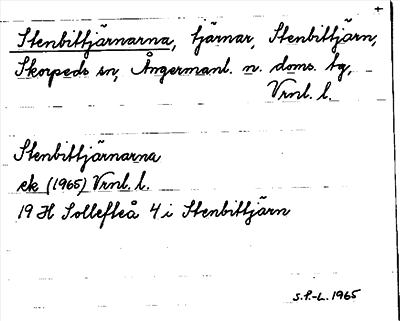 +
Stenbittjärnarna, tjärnar, Stenbittjärn,
Skorpeds sn, Ångermanl. n. doms. tg,
Vrnl. l.
Stenbittjärnarna
ek (1965) Vrnl. l.
19 H Sollefteå 4 i Stenbittjärn
S.P.-L. 1965